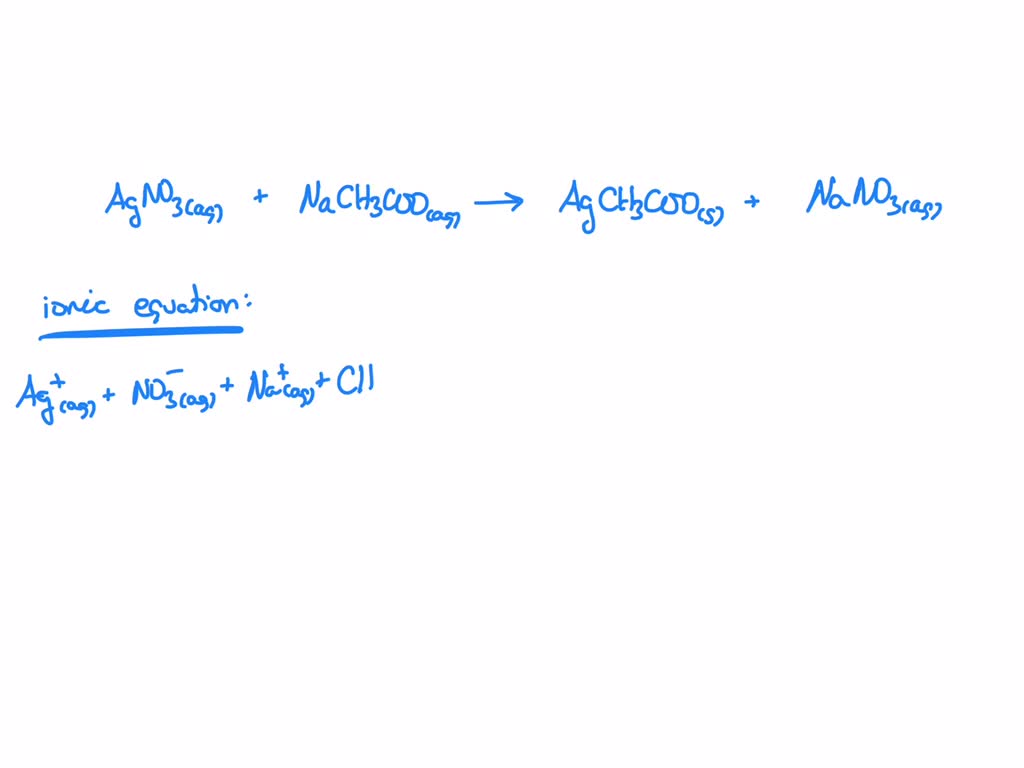 AgNO3(aq) + NaCH3COO(aq) → AgCH3COO(s) + NaNO3(aq)
ionic equation:
Ag+(aq) + NO3-(aq) + Na+(aq) + Cl